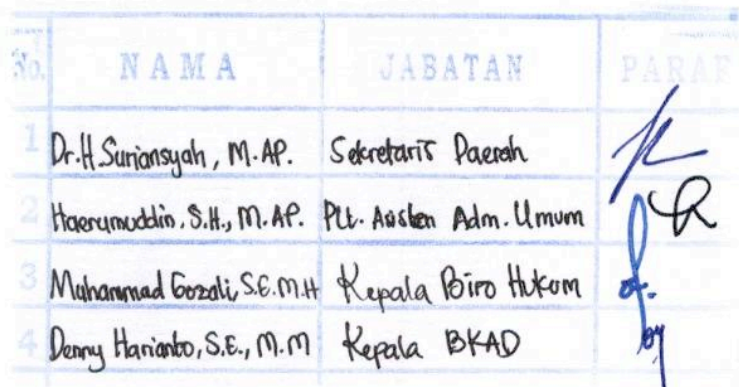 No. NAMA JABATAN PARAF
1 Dr. H. Suriansyah, M.AP. Sekretaris Daerah
2 Haerumuddin, S.H., M.AP. Plt. Asisten Adm. Umum
3 Muhammad Gozali, S.E. M.H Kepala Biro Hukum
4 Denny Harianto, S.E., M.M Kepala BKAD